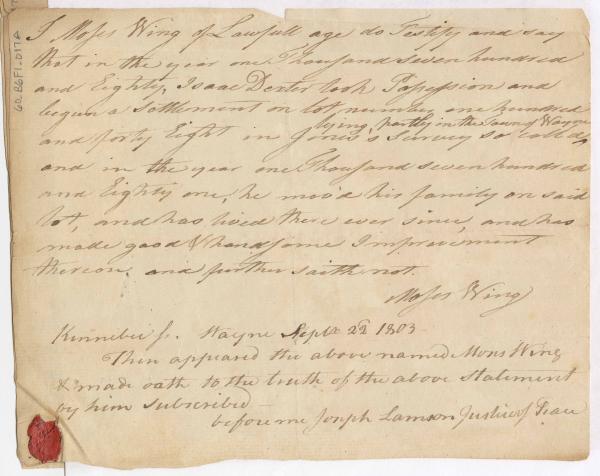 60.B6F1.017A
I Moses Wing of Lawfull age do Testify and say
that in the year one Thousand seven hundred
and Eighty, Isaac Dexter took Possession and
begun a settlement on lot number one hundred
lying partly in the Town of Wayne
and forty Eight in Jones's Survey so calld
and in the year one Thousand seven hundred
and Eighty one, he mov'd his family on said
lot, and has lived there ever since, and has
made good & handsome Improvement
thereon, and further saith not.
Moses Wing
Kinnebec Ss. Wayne Sept. 22d 1803
Then appeared the above named Moses Wing
& made oath to the truth of the above statement
by him subscribed—
before me Joseph Lamson Justice of Peace